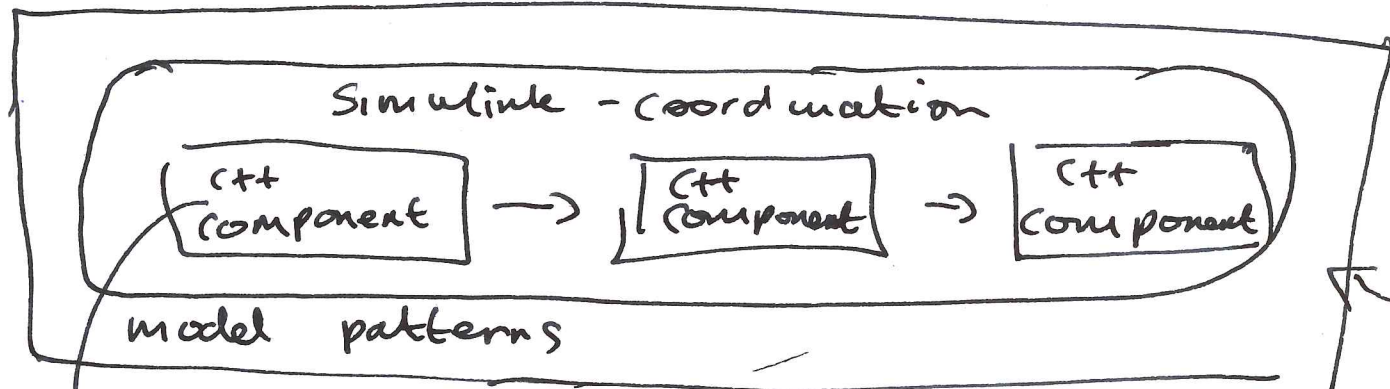 Simulink - coordination
C++
component
C++
component
C++
component
model patterns